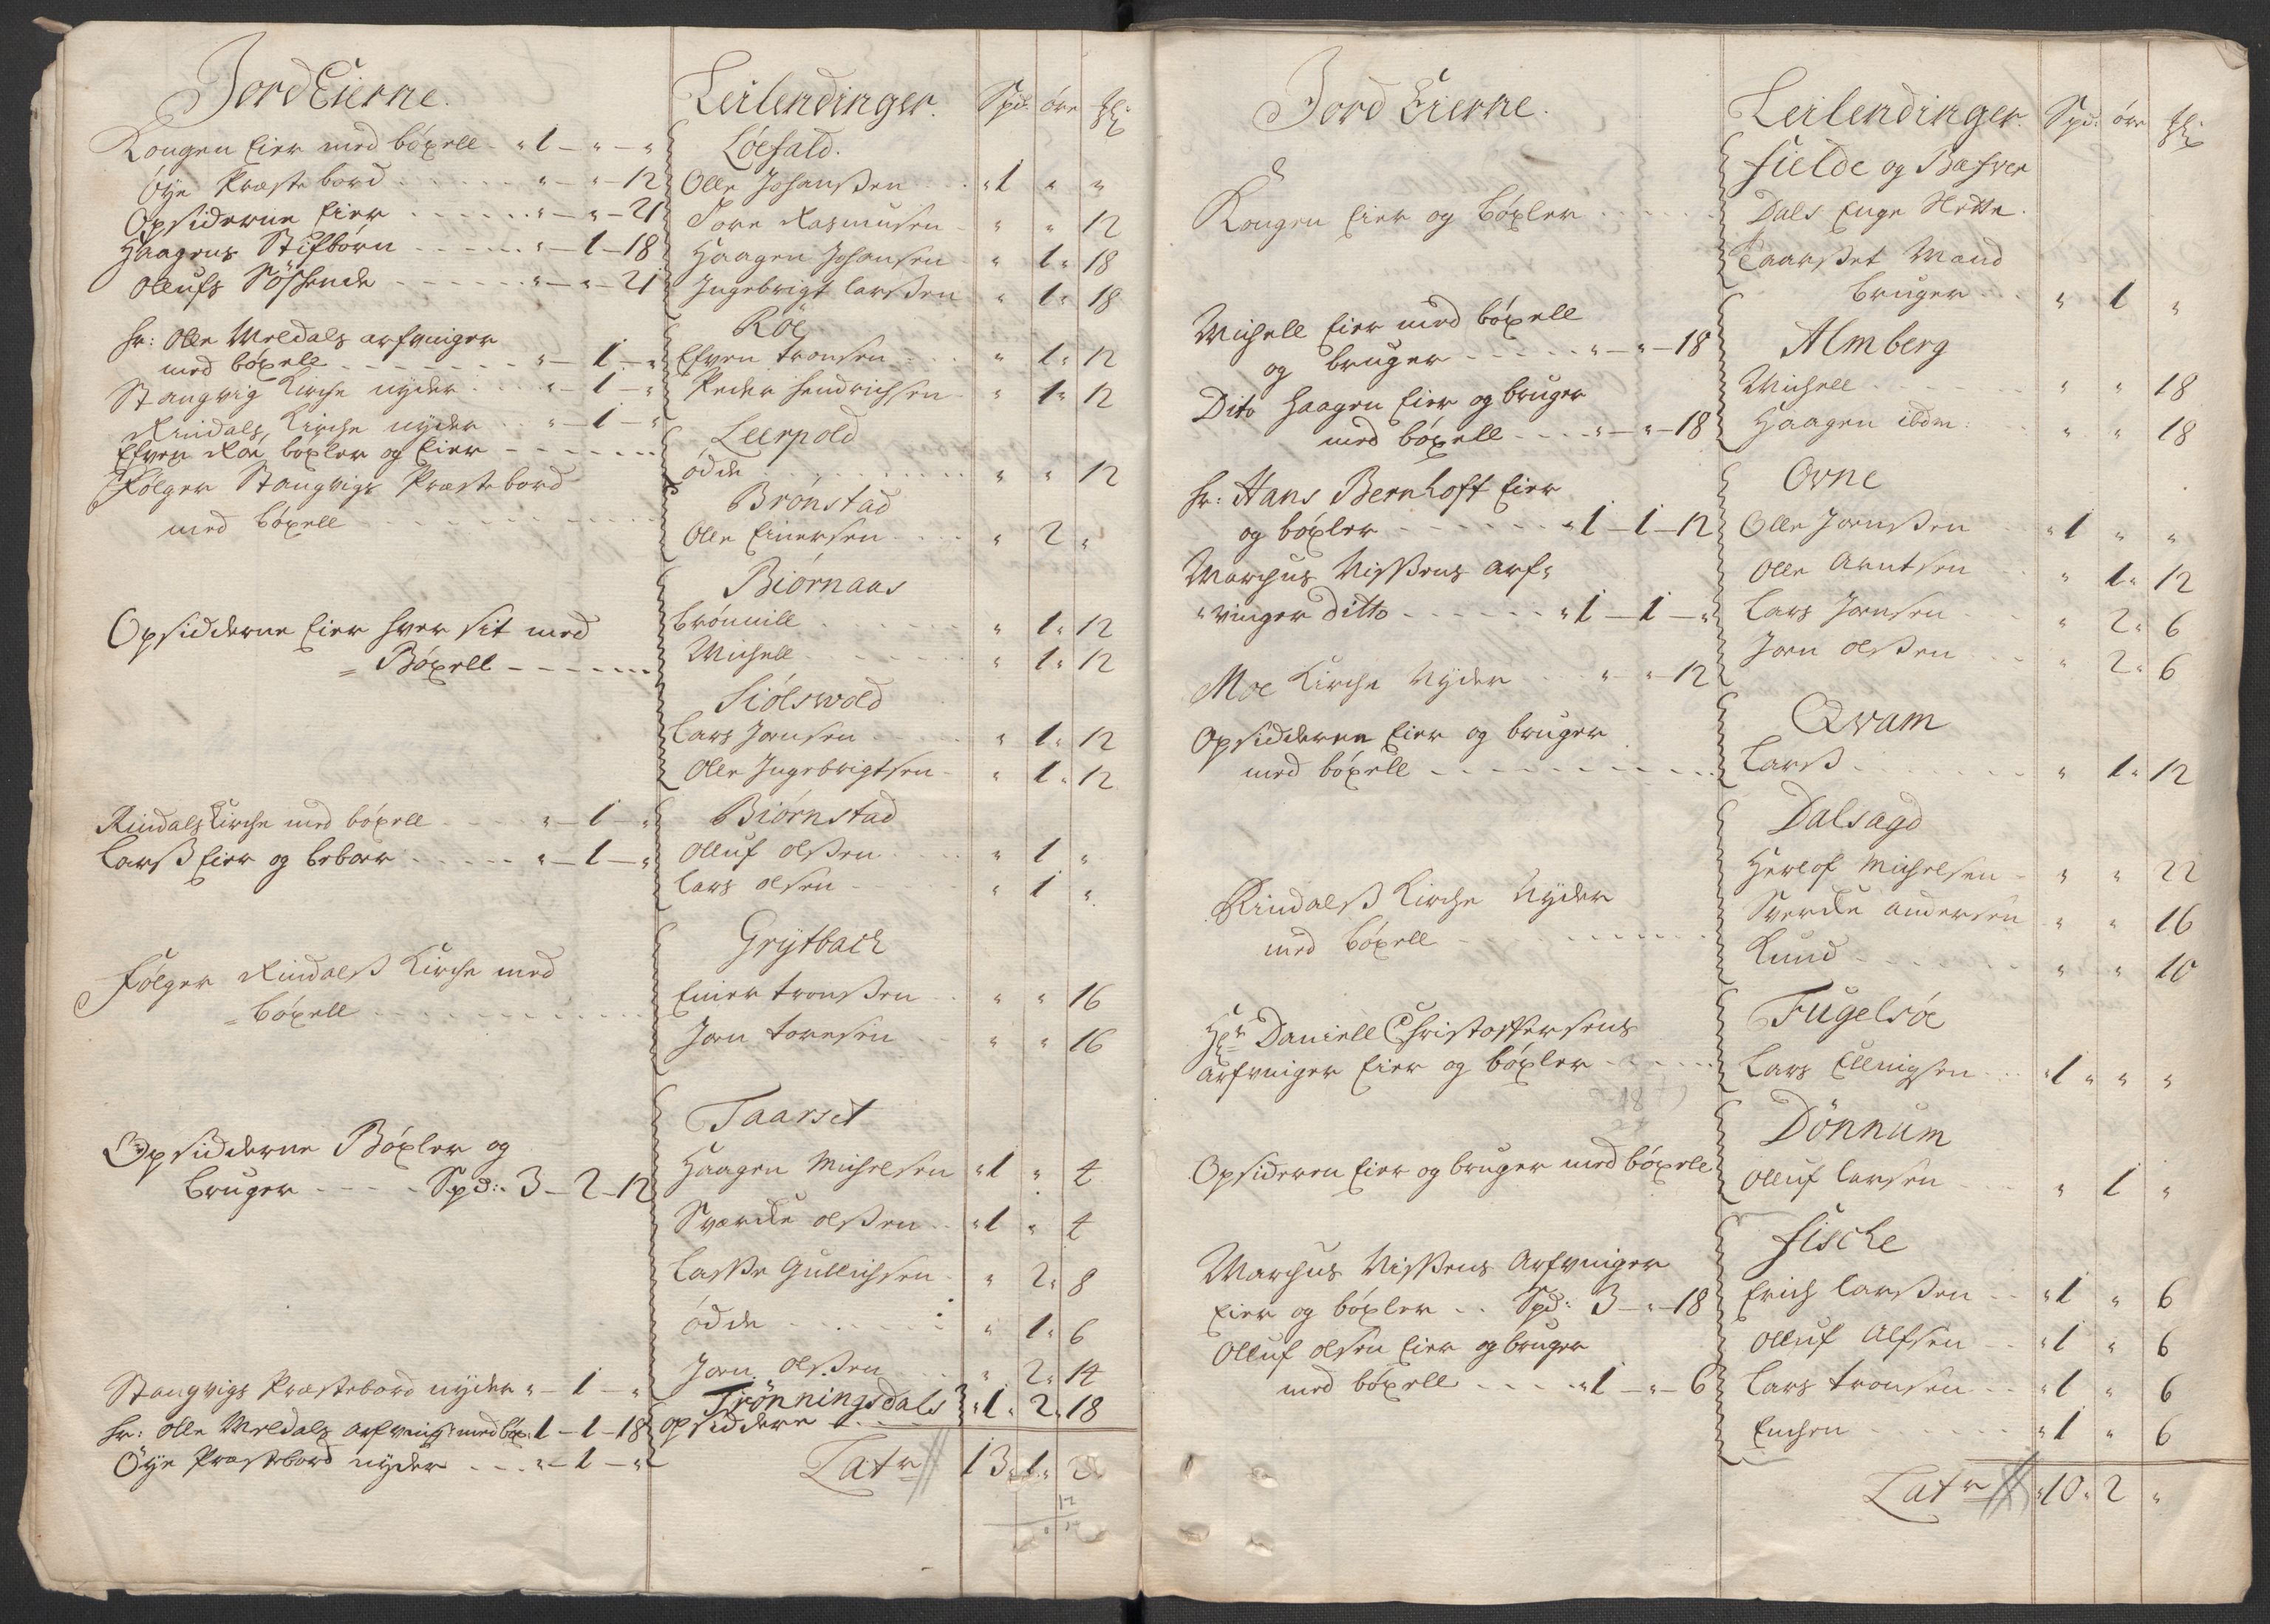 Jord Eierne.
Kongen Eier med böxell - " 1 - " - "
Öÿe Præstebord . . . . . " - " - 12
Opsiderne Eier . . . . . " - " - 21
Haagens Stifbörn . . . . " - 1 - 18
Ollufs Söskende . . . . . " - " - 21
hr: Olle Meldals arfvinger
med böxel . . . . . " - 1 - "
Stangvig Kirche nyder . . . " - 1 - "
Rindals Kirche nyder . . " - 1 - "
Efven Röe böxler og Eier - - - - -
Fölger Stangvigs Præstebord
med böxell
Opsidderne Eier hver sit med
= Böxell - - - - - -
Rindals Kirche med böxell - - - " - 1 - "
Larß Eier og beboer - - - - - " - 1 - "
Fölger Rindalß Kirche med
= böxell
Opsidderne Böxler og
bruger - - - - Spd: 3 - 2 - 12
Stangvigs Præstebord nyder " - 1 - "
hr: Olle Meldals arfving: med böx: 1 - 1 - 18
Öÿe Præstebord nyder - - - " - 1 - "
Leilendinger. Spd: öre
Löefald.
Olle Johanßen . . " 1 " "
Tore Rasmusen - " " 12
Haagen Johansen " 1 " 18
Ingebrigt Larßen " 1 " 18
Röe
Efven Tronsen . . " 1 " 12
Peder Hendrichsen - " 1 " 12
Leerpold
Ödde . . . . . " " 12
Brönstad
Olle Einersen . . . " 2 "
Biörnaas
Brönnill . . . . " 1 " 12
Michell . . . . " 1 " 12
Siölswold
Lars Jonsen . . . " 1 " 12
Olle Ingebrigtsen - " 1 " 12
Biörnstad
Olluf Olßen . . . " 1 "
Lars Olsen . . . " 1 "
Grÿtbach
Einer Tronßen . . " " 16
Jon Toresen . . " " 16
Taarset
Haagen Michelsen " 1 " 4
Sværcke Olßen . . " 1 " 4
Laße Gullichsen - " 2 " 8
Ödde . . . . . " 1 " 6
Jon Olßen . . . " 2 " 14
Trönningsdals
opsiddere - - - " 1 " 2 " 18
Latr 13 " 1 "
12
Jord Eierne.
Kongen Eier og böxler . . . . .
Michell Eier med böxell
og bruger - - - - - " - " - 18
Dito Haagen Eier og bruger
med böxell - - - - " - " - 18
hr: Hans Bernhoft Eier
og böxler - - - - - - " 1 - 1 - 12
Marchus Nißens arf"
"vinger ditto - - - - - " 1 - 1 - "
Moe Kirche Nyder . . . " - " - 12
Opsidderne Eier og bruger
med böxell - - - - - - - - -
Rindalß Kirche Nyder
med böxell - - - - - - -
Hr Daniell Christoffersens
arfvinger Eier og böxler - - - -
18
Opsideren Eier og bruger med böxell
Marchus Nißens Arfvinger
Eier og böxler . . Spd: 3 - " - 18
Olluf Olsen Eier og bruger
med böxell - - - - " 1 - " - 6
Leilendinger. Spd: öre
Fielde og Bæfver
Dals Enge Slette.
Taarßet Mænd
bruger . . . " 1 "
Almberg
Michell . . . . . " " 18
Haagen ibdm: . . " " 18
Orne
Olle Jonßen . . " 1 " "
Olle Arntsen . . " 1 " 12
Lars Jonsen . . " 2 " 6
Jon Olßen . . . " 2 " 6
Qvam
Larß . . . . . . " 1 " 12
Dalsagd
Herlof Michelsen - " " 22
Sverche Andersen . " " 16
Knud . . . . . . " " 10
Fugelsöe
Lars Ellingsen . . " 1 " " "
Dönnum
Olluf Larsen . . . " 1 "
Fiske
Erich Larßen . . " 1 " 6
Olluf Alfsen . . " 1 " 6
Lars Tronsen . . " 1 " 6
Enchen . . . . . . " 1 " 6
Latr " 10 " 2 "